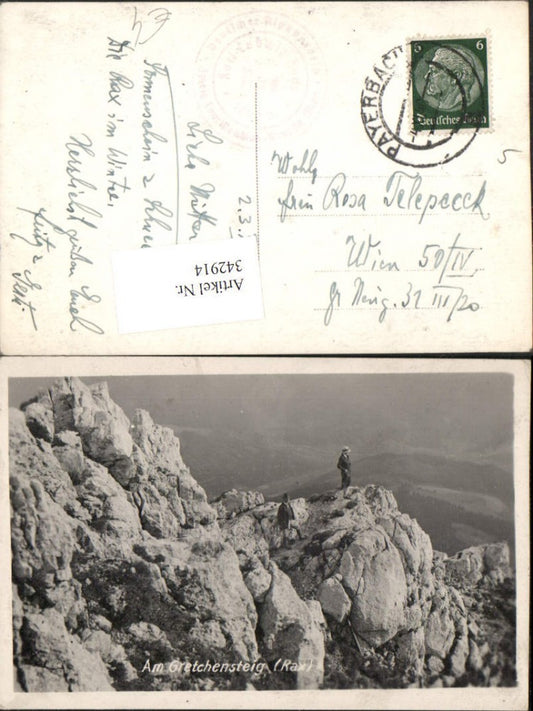 2.3.
Liebe Mutter
Sonnenschein &
Die Rax im Winter.
Herzlichst grüßen Euch
Artikel Nr.
342914
6 6
Deutsches Reich
PAYERBACH
5
Wohlg
Frau Rosa Telepeeck
Wien 50/IV
31 III/20
Am Gretchensteig (Rax)